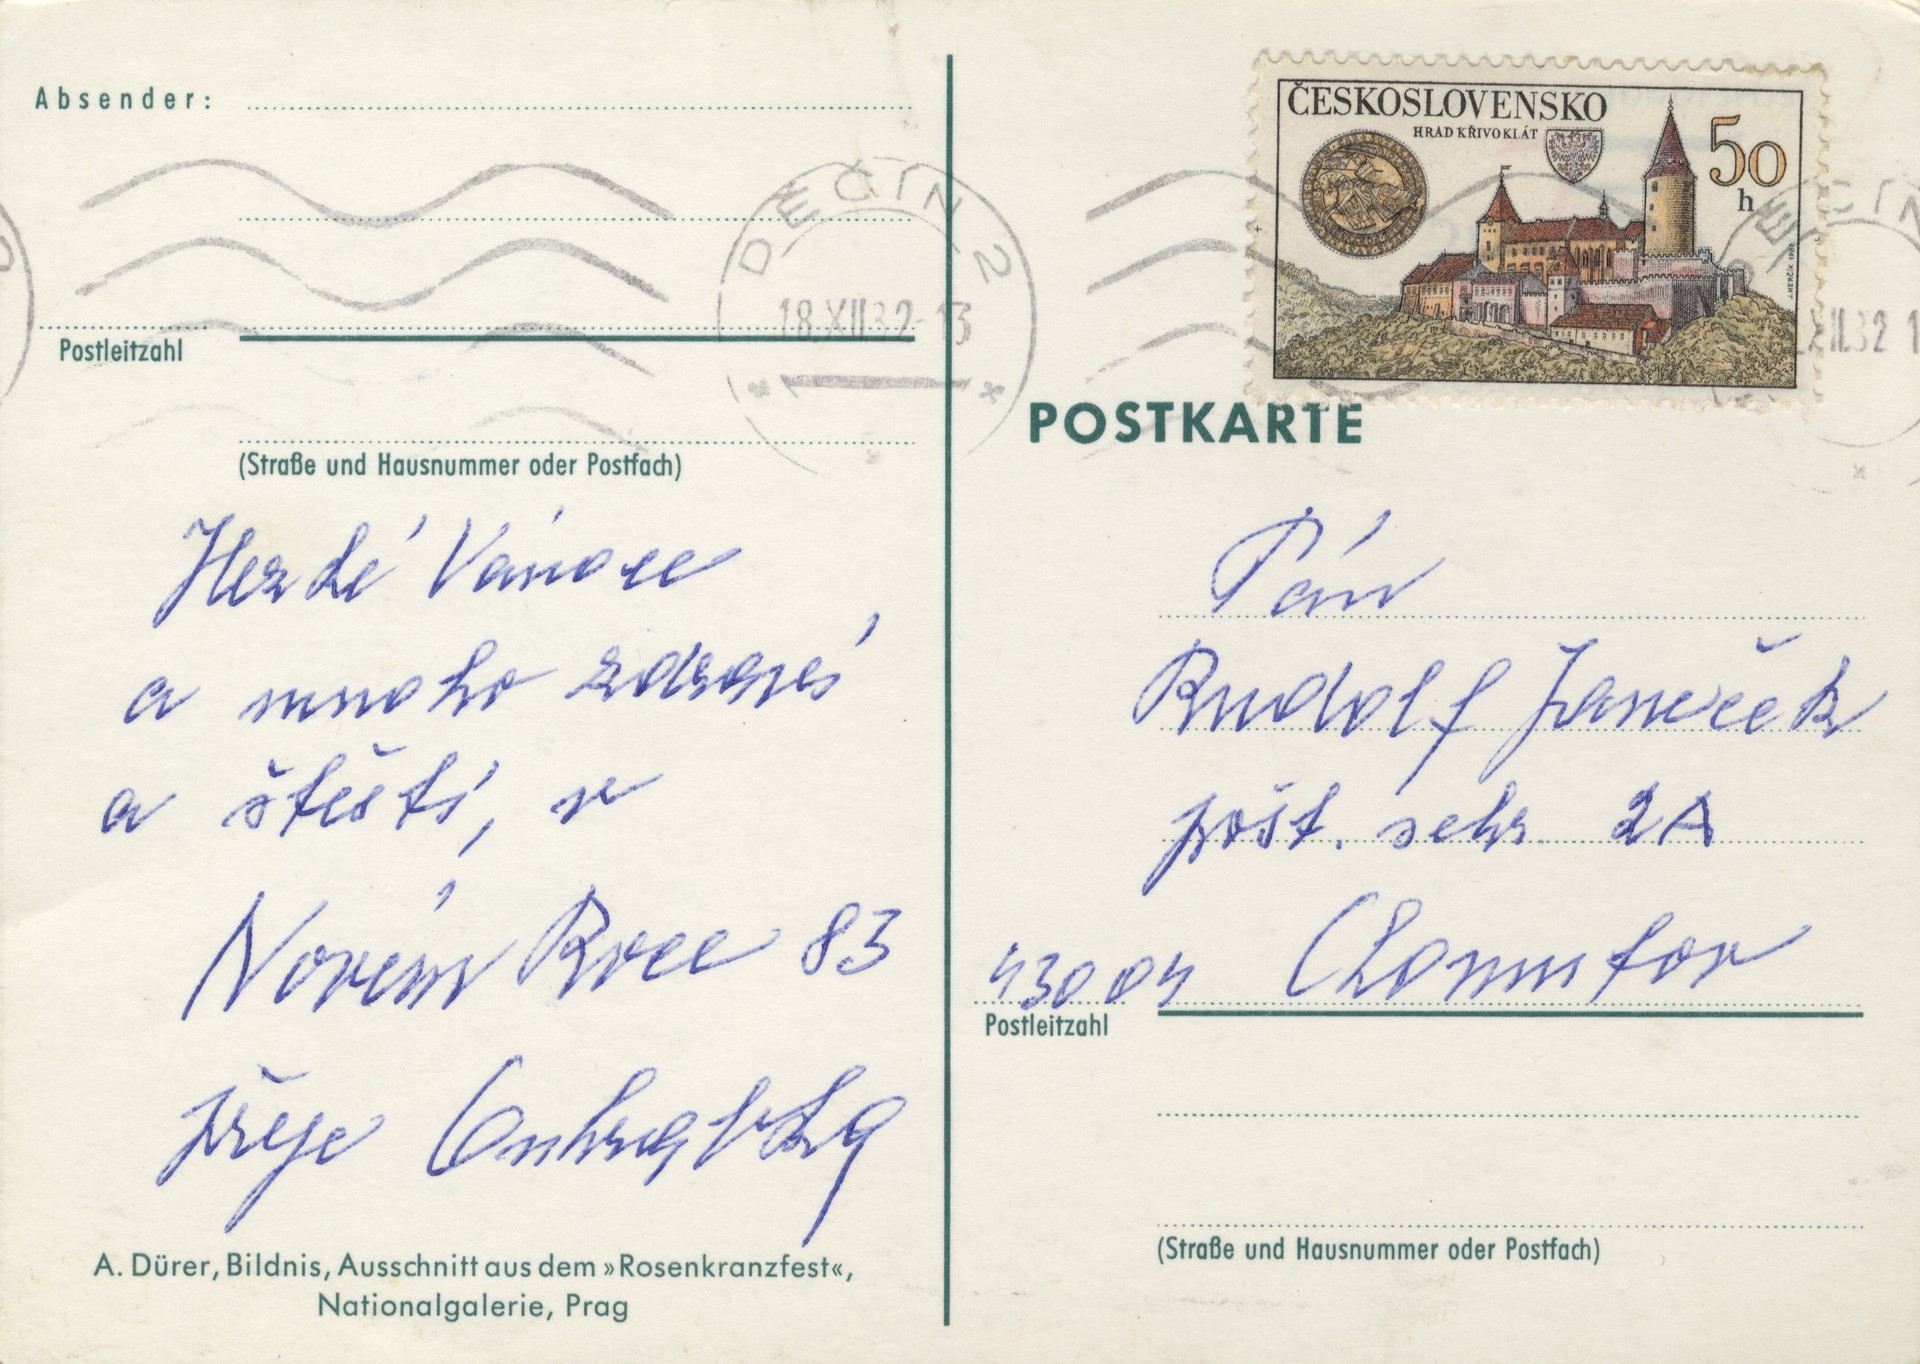 Absender:
DĚČÍN 2
18.XII.82-13
Postleitzahl
(Straße und Hausnummer oder Postfach)
Hezké Vánoce
a mnoho zdraví
a štěstí, v
Novém Roce 83
přeje
A. Dürer, Bildnis, Ausschnitt aus dem »Rosenkranzfest«,
Nationalgalerie, Prag
ČESKOSLOVENSKO
HRAD KŘIVOKLÁT
50
h
POSTKARTE
Pán
Rudolf Janeček
pošt. schr. 2A
43004 Chomutov
Postleitzahl
(Straße und Hausnummer oder Postfach)